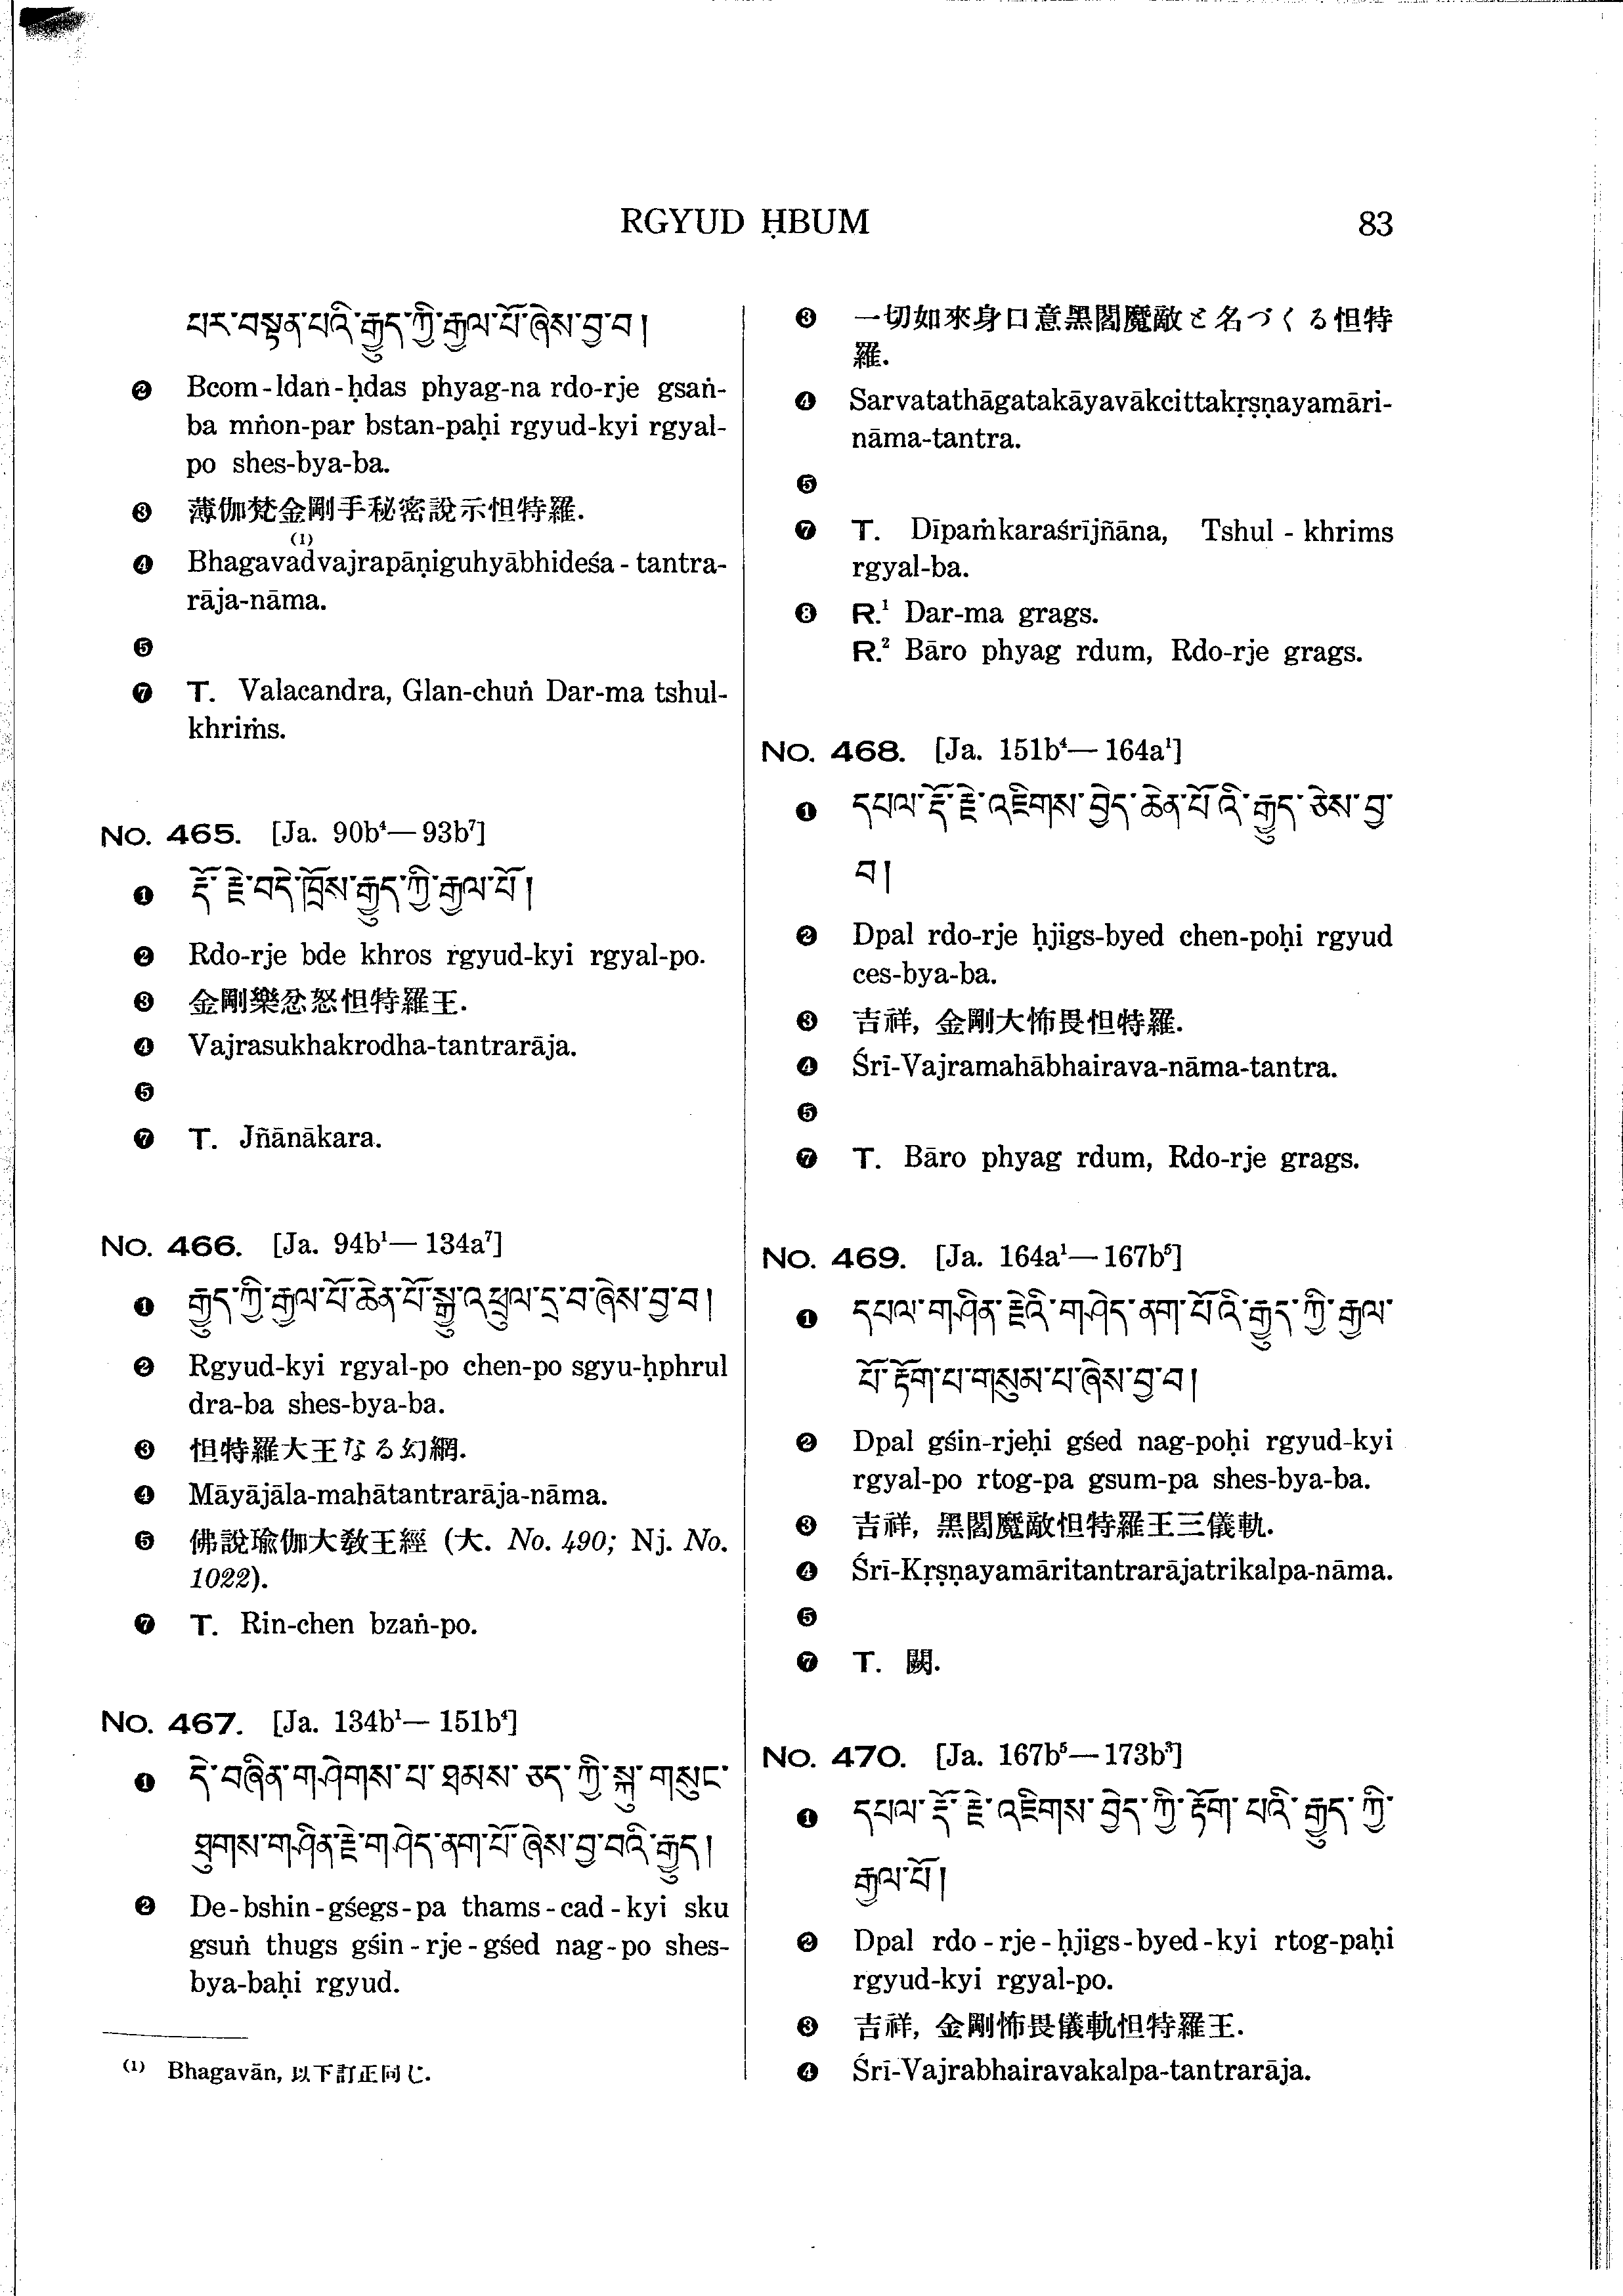 RGYUD ḤBUM 83
པར་བསྟན་པའི་རྒྱུད་ཀྱི་རྒྱལ་པོ་ཞེས་བྱ་བ།
❷ Bcom-ldan-ḥdas phyag-na rdo-rje gsaṅ-
ba mṅon-par bstan-paḥi rgyud-kyi rgyal-
po shes-bya-ba.
❸ 薄伽梵金剛手秘密說示怛特羅.
❹ Bhagavad⁽¹⁾vajrapāṇiguhyābhideśa-tantra-
rāja-nāma.
❺
❼ T. Valacandra, Glan-chuṅ Dar-ma tshul-
khriṁs.
No. 465. [Ja. 90b⁴—93b⁷]
❶ རྡོ་རྗེ་བདེ་ཁྲོས་རྒྱུད་ཀྱི་རྒྱལ་པོ།
❷ Rdo-rje bde khros rgyud-kyi rgyal-po.
❸ 金剛樂忿怒怛特羅王.
❹ Vajrasukhakrodha-tantrarāja.
❺
❼ T. Jñānākara.
No. 466. [Ja. 94b¹—134a⁷]
❶ རྒྱུད་ཀྱི་རྒྱལ་པོ་ཆེན་པོ་སྒྱུ་འཕྲུལ་དྲ་བ་ཞེས་བྱ་བ།
❷ Rgyud-kyi rgyal-po chen-po sgyu-ḥphrul
dra-ba shes-bya-ba.
❸ 怛特羅大王なる幻網.
❹ Māyājāla-mahātantrarāja-nāma.
❺ 佛說瑜伽大敎王經 (大. No. 490; Nj. No.
1022).
❼ T. Rin-chen bzaṅ-po.
No. 467. [Ja. 134b¹—151b⁴]
❶ དེ་བཞིན་གཤེགས་པ་ཐམས་ཅད་ཀྱི་སྐུ་གསུང་
ཐུགས་གཤིན་རྗེ་གཤེད་ནག་པོ་ཞེས་བྱ་བའི་རྒྱུད།
❷ De-bshin-gśegs-pa thams-cad-kyi sku
gsuṅ thugs gśin-rje-gśed nag-po shes-
bya-baḥi rgyud.
⁽¹⁾ Bhagavān, 以下訂正同じ.
❸ 一切如來身口意黑閻魔敵と名づくる怛特
羅.
❹ Sarvatathāgatakāyavākcittakṛṣṇayamāri-
nāma-tantra.
❺
❼ T. Dīpaṁkaraśrījñāna, Tshul-khrims
rgyal-ba.
❽ R.¹ Dar-ma grags.
R.² Bāro phyag rdum, Rdo-rje grags.
No. 468. [Ja. 151b⁴—164a¹]
❶ དཔལ་རྡོ་རྗེ་འཇིགས་བྱེད་ཆེན་པོའི་རྒྱུད་ཅེས་བྱ་
བ།
❷ Dpal rdo-rje ḥjigs-byed chen-poḥi rgyud
ces-bya-ba.
❸ 吉祥, 金剛大怖畏怛特羅.
❹ Śrī-Vajramahābhairava-nāma-tantra.
❺
❼ T. Bāro phyag rdum, Rdo-rje grags.
No. 469. [Ja. 164a¹—167b⁵]
❶ དཔལ་གཤིན་རྗེའི་གཤེད་ནག་པོའི་རྒྱུད་ཀྱི་རྒྱལ་
པོ་རྟོག་པ་གསུམ་པ་ཞེས་བྱ་བ།
❷ Dpal gśin-rjeḥi gśed nag-poḥi rgyud-kyi
rgyal-po rtog-pa gsum-pa shes-bya-ba.
❸ 吉祥, 黑閻魔敵怛特羅王三儀軌.
❹ Śrī-Kṛṣṇayamāritantrarājatrikalpa-nāma.
❺
❼ T. 闕.
No. 470. [Ja. 167b⁵—173b³]
❶ དཔལ་རྡོ་རྗེ་འཇིགས་བྱེད་ཀྱི་རྟོག་པའི་རྒྱུད་ཀྱི་
རྒྱལ་པོ།
❷ Dpal rdo-rje-ḥjigs-byed-kyi rtog-paḥi
rgyud-kyi rgyal-po.
❸ 吉祥, 金剛怖畏儀軌怛特羅王.
❹ Śrī-Vajrabhairavakalpa-tantrarāja.